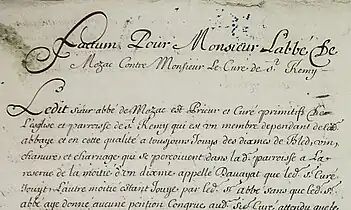 Factum Pour Monsieur L'abbé De
Mozac Contre Monsieur Le Curé de St. Remy
Ledit sieur abbé de Mozac est Prieur et Curé primitif de
L'eglise et parroisse de st. Remy qui est un membre dependant de
abbaye et en cette qualité a tousjours Jouy des dixmes de Bled, vin,
chanure et charnage qui se perçoivent dans la d. parroisse a La
reserve de la moitié d'un dixme appellé Bauayat que led. Sr. Curé
Jouyt, L'autre moitié estant Jouye par led. Sr. abbé Sans que led. Sr.
abbé aye donné aucune pention Congrue aud. Sr. Curé attendu que le